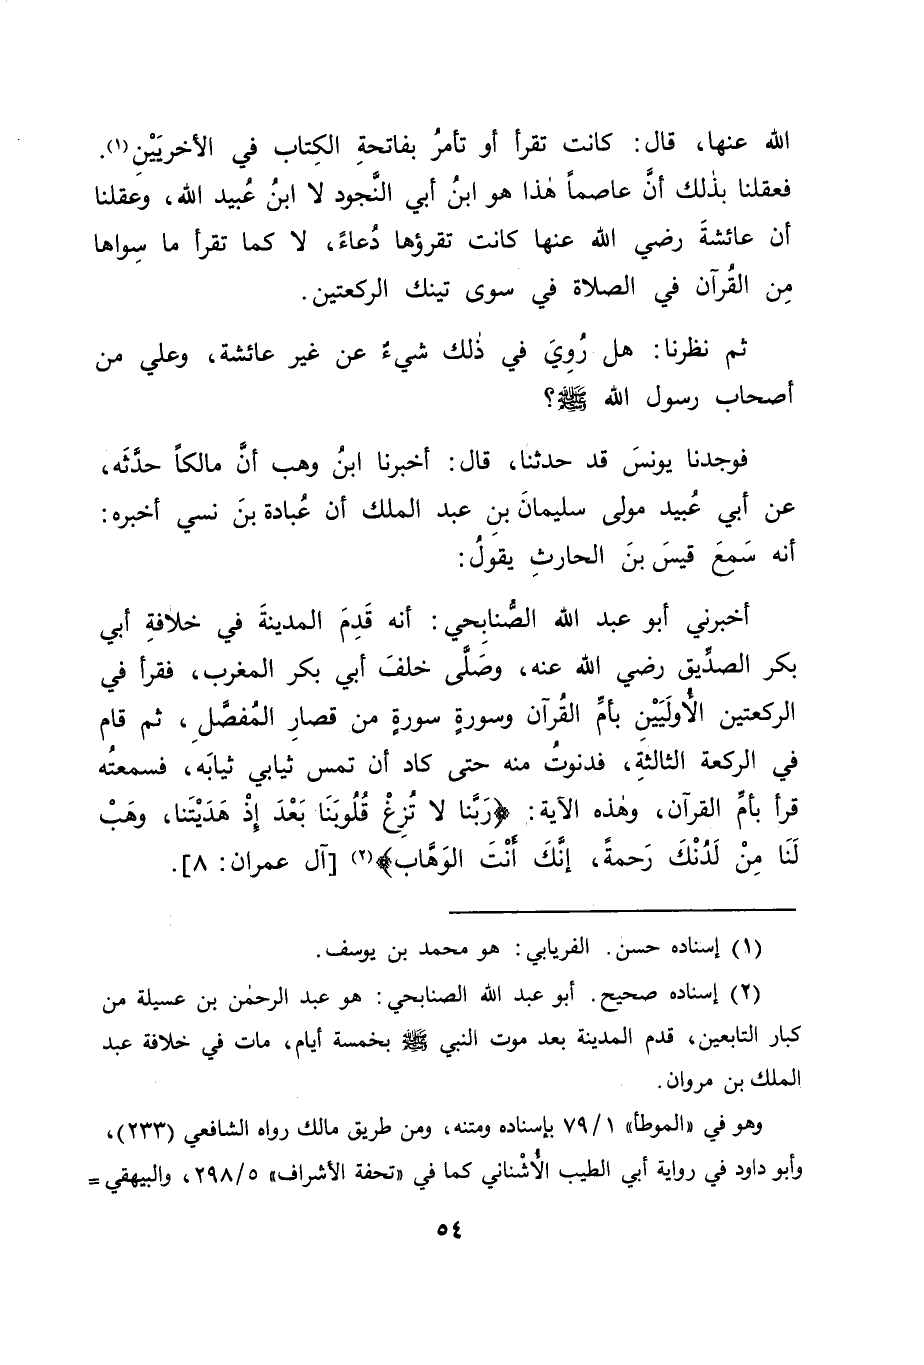 الله عنها، قال: كانت تقرأ أو تأمرُ بفاتحةِ الكِتاب في الأخريَيْنِ(١).
فعقلنا بذٰلك أنَّ عاصماً هٰذا هو ابنُ أبي النَّجود لا ابنُ عُبيد الله، وعقلنا
أن عائشةَ رضي الله عنها كانت تقرؤها دُعاءً، لا كما تقرأ ما سِواها
مِن القُرآن في الصلاة في سوى تينك الركعتين.
ثم نظرنا: هل رُوِيَ في ذٰلك شيءٌ عن غير عائشة، وعلي من
أصحاب رسول الله ﷺ؟
فوجدنا يونسَ قد حدثنا، قال: أخبرنا ابنُ وهب أنَّ مالكاً حدَّثَه،
عن أبي عُبيد مولى سليمانَ بنِ عبد الملك أن عُبادة بنَ نسي أخبره:
أنه سَمِعَ قيسَ بنَ الحارثِ يقولُ:
أخبرني أبو عبد الله الصُّنابِحي: أنه قَدِمَ المدينةَ في خلافةِ أبي
بكر الصدِّيق رضي الله عنه، وصَلَّى خلفَ أبي بكر المغرب، فقرأ في
الركعتين الأُولَيَيْنِ بأمِّ القُرآن وسورةٍ سورةٍ من قصارِ المُفصَّلِ، ثم قام
في الركعة الثالثةِ، فدنوتُ منه حتى كاد أن تمس ثيابي ثيابَه، فسمعتُه
قرأ بأمِّ القرآن، وهٰذه الآية: ﴿رَبَّنا لا تُزِغْ قُلُوبَنَا بَعْدَ إِذْ هَدَيْتَنا، وهَبْ
لَنَا مِنْ لَدُنْكَ رَحمةً، إنَّكَ أَنْتَ الوَهَّاب﴾(٢) [آل عمران: ٨].
(١) إسناده حسن. الفريابي: هو محمد بن يوسف.
(٢) إسناده صحيح. أبو عبد الله الصنابحي: هو عبد الرحمٰن بن عسيلة من
كبار التابعين، قدم المدينة بعد موت النبي ﷺ بخمسة أيام، مات في خلافة عبد
الملك بن مروان.
وهو في «الموطأ» ٧٩/١ بإسناده ومتنه، ومن طريق مالك رواه الشافعي (٢٣٣)،
وأبو داود في رواية أبي الطيب الأُشْناني كما في «تحفة الأشراف» ٢٩٨/٥، والبيهقي =
٥٤